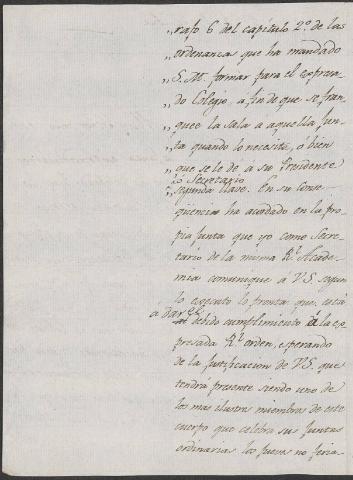 „rafo 6 del capitulo 2.º de las
„ordenanzas que ha mandado
„S. M. formar para el expresa-
„do Colegio, á fin de que se fran-
„quee la sala a aquella jun-
„ta quando lo necesite, o bien
„que se le dé á su Presidente
ó Secretario
„segunda llave. En su conse-
qüencia ha acordado en la pro-
pia Junta que yo como Secre-
tario de la misma Rl. Acade-
mia comunique á V.S. segun
lo executo lo pronta que está
a dar el debido cumplimiento á la ex-
presada Rl. orden, esperando
de la justificacion de V.S. que
tendrá presente siendo uno de
los mas ilustres miembros de este
cuerpo que celebra sus juntas
ordinarias los jueves no feria-